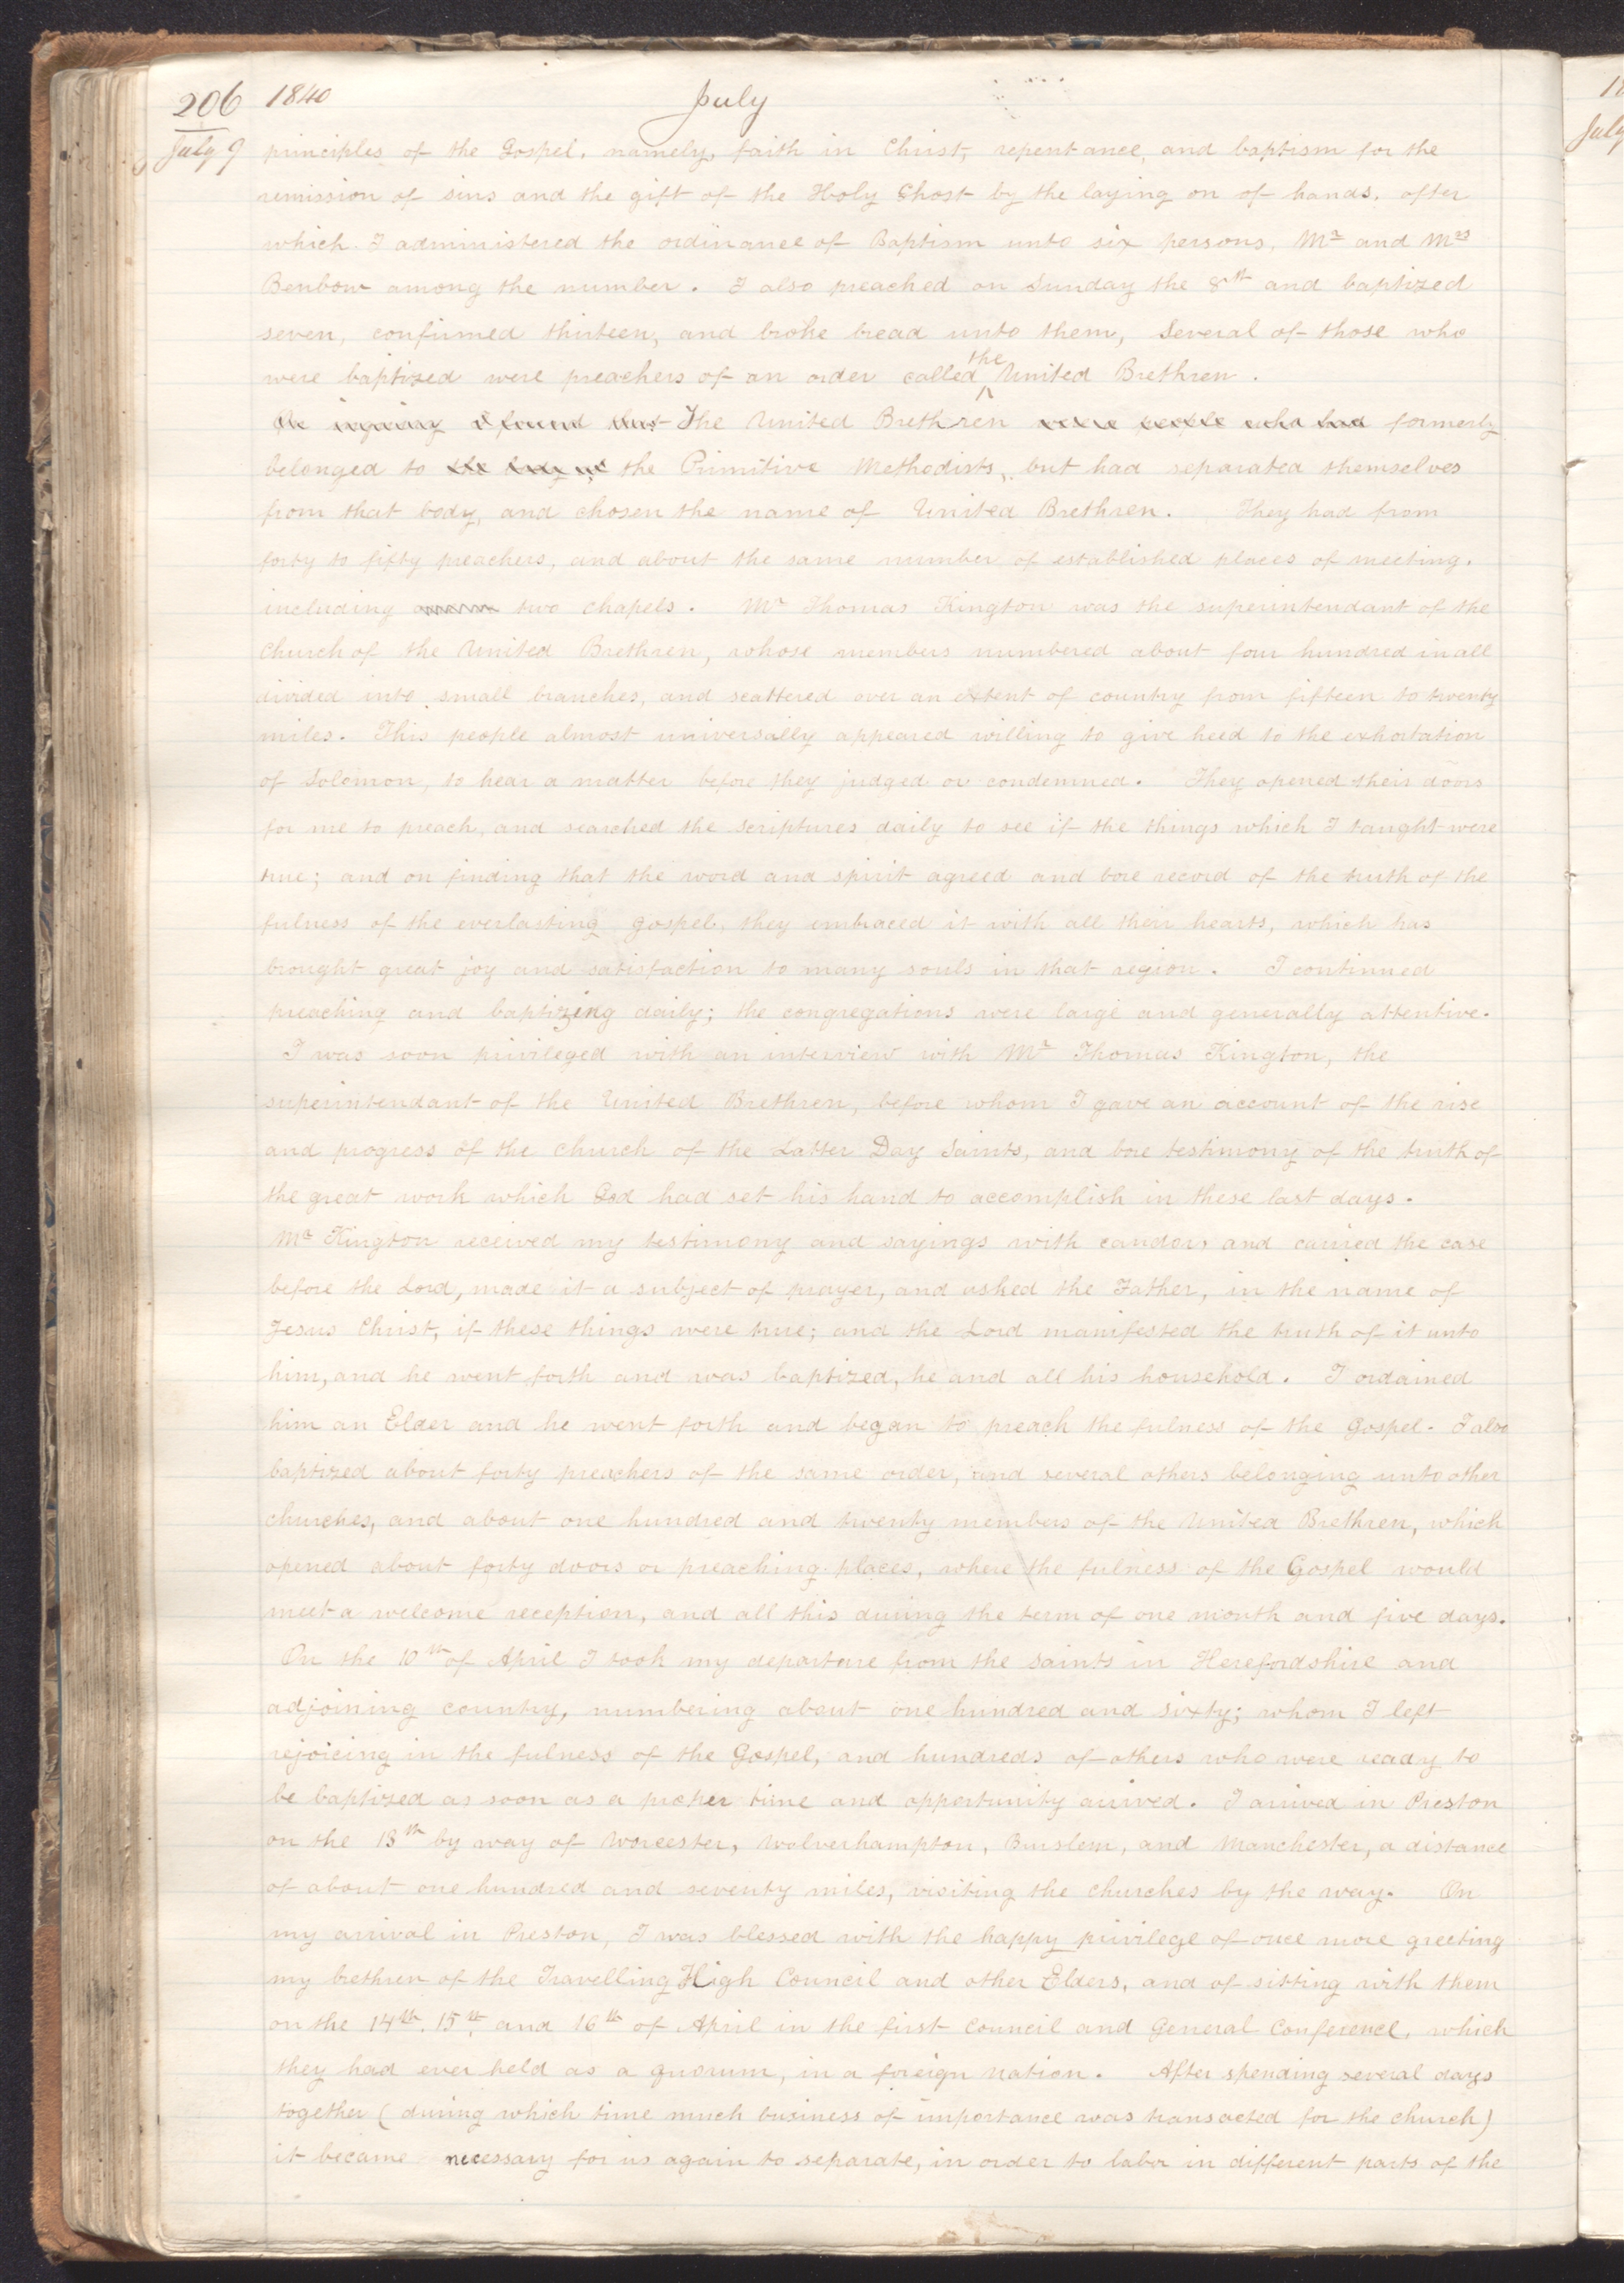 206 1840 July
July 9 principles of the Gospel, namely, faith in Christ, repentance, and baptism for the
remission of sins and the gift of the Holy Ghost by the laying on of hands, after
which I administered the ordinance of Baptism unto six persons, Mr and Mrs
Benbow among the number. I also preached on Sunday the 8th and baptized
seven, confirmed thirteen, and broke bread unto them, Several of those who
were baptized were preachers of an order called the United Brethren.
On inquiry I found that The United Brethren were people who had formerly
belonged to the body of the Primitive Methodists, but had separated themselves
from that body, and chosen the name of United Brethren. They had from
forty to fifty preachers, and about the same number of established places of meeting,
including two chapels. Mr Thomas Kington was the superintendant of the
Church of the United Brethren, whose members numbered about four hundred in all
divided into small branches, and scattered over an extent of country from fifteen to twenty
miles. This people almost universally appeared willing to give heed to the exhortation
of Solomon, to hear a matter before they judged or condemned. They opened their doors
for me to preach, and searched the scriptures daily to see if the things which I taught were
true; and on finding that the word and spirit agreed and bore record of the truth of the
fulness of the everlasting gospel, they embraced it with all their hearts, which has
brought great joy and satisfaction to many souls in that region. I continued
preaching and baptizing daily; the congregations were large and generally attentive.
I was soon privileged with an interview with Mr Thomas Kington, the
superintendant of the United Brethren, before whom I gave an account of the rise
and progress of the church of the Latter Day Saints, and bore testimony of the truth of
the great work which God had set his hand to accomplish in these last days.
Mr Kington received my testimony and sayings with candor, and carried the case
before the Lord, made it a subject of prayer, and asked the Father, in the name of
Jesus Christ, if these things were true; and the Lord manifested the truth of it unto
him, and he went forth and was baptized, he and all his household. I ordained
him an Elder and he went forth and began to preach the fulness of the Gospel. I also
baptized about forty preachers of the same order, and several others belonging unto other
churches, and about one hundred and twenty members of the United Brethren, which
opened about forty doors or preaching places, where the fulness of the Gospel would
meet a welcome reception, and all this during the term of one month and five days.
On the 10th of April I took my departure from the Saints in Herefordshire and
adjoining country, numbering about one hundred and sixty; whom I left
rejoicing in the fulness of the Gospel, and hundreds of others who were ready to
be baptized as soon as a proper time and opportunity arrived. I arrived in Preston
on the 13th by way of Worcester, Wolverhampton, Burslem, and Manchester, a distance
of about one hundred and seventy miles, visiting the churches by the way. On
my arrival in Preston, I was blessed with the happy privilege of once more greeting
my brethren of the Travelling High Council and other Elders, and of sitting with them
on the 14th. 15th. and 16th of April in the first council and General Conference, which
they had ever held as a quorum, in a foreign nation. After spending several days
together (during which time much business of importance was transacted for the church)
it became necessary for us again to separate, in order to labor in different parts of the
18
July